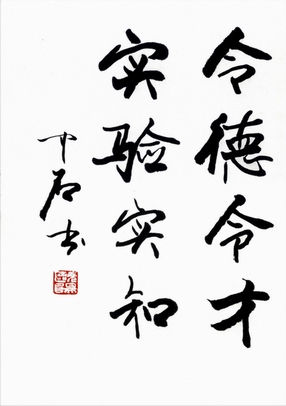 令德令才
实验实知
中石书